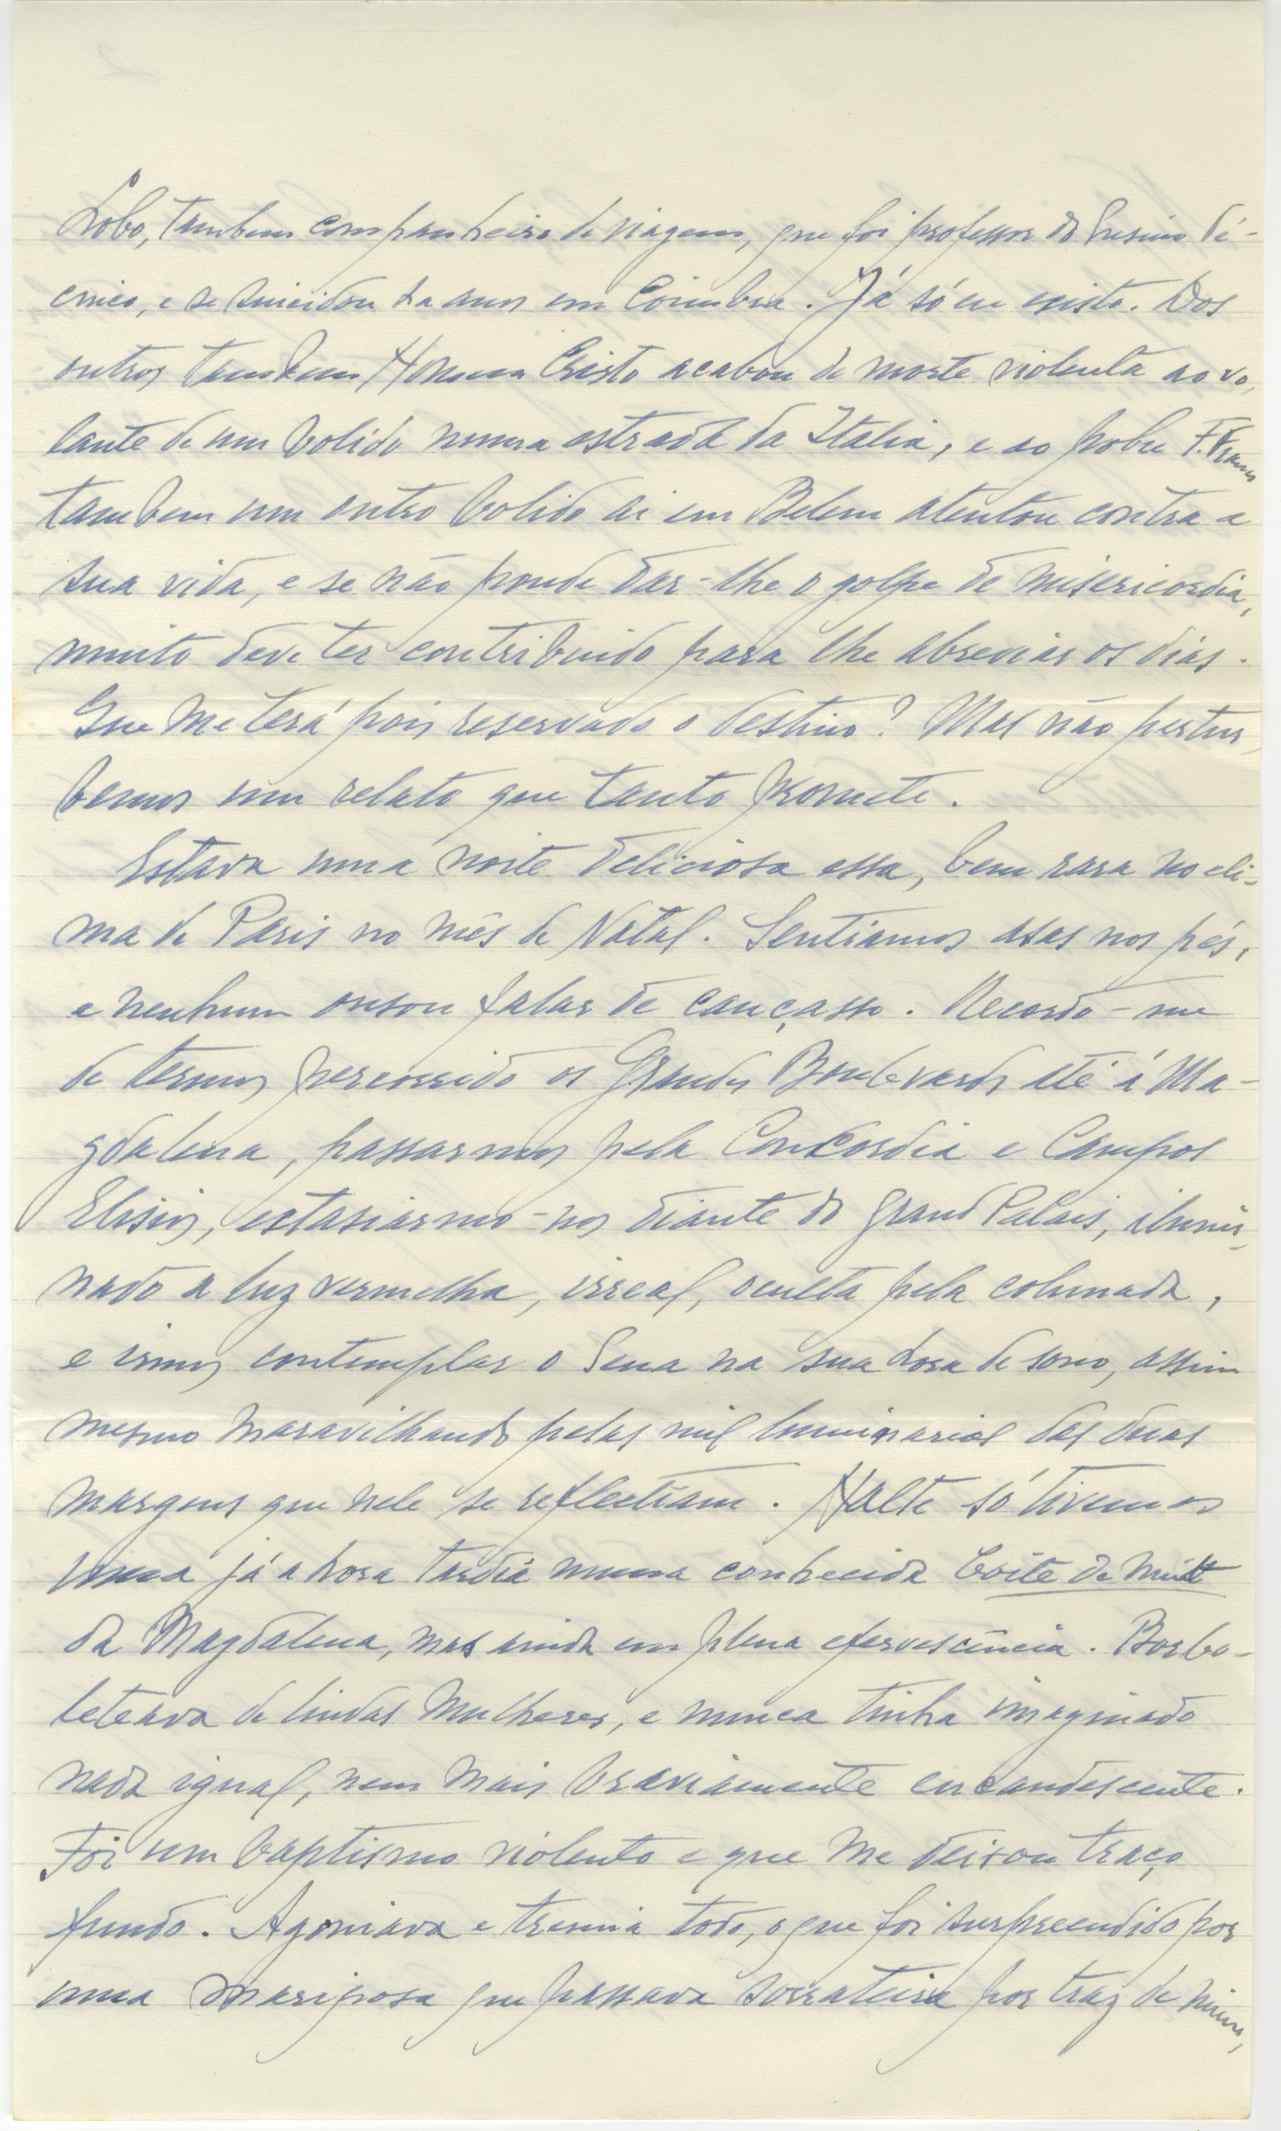 Lobo, tambem companheiro de viagem, que foi professor do Ensino Té-
cnico, e se suicidou ha anos em Coimbra. Já só eu existo. Dos
outros tambem Homem Cristo acabou de morte violenta ao vo-
lante de um bolido numa estrada da Italia, e ao pobre F. Franco
tambem um outro bolido ai em Belem atentou contra a
sua vida, e se não poude dar-lhe o golpe de misericordia,
muito deve ter contribuido para lhe abreviar os dias.
Que me terá pois reservado o destino? Mas não pertur-
bemos um relato que tanto promete.
Estava uma noite deliciosa essa, bem rara no cli-
ma de Paris no mês de Natal. Sentiamos asas nos pés,
e nenhum ousou falar de cançasso. Recordo-me
de termos percorrido os Grandes Boulevards até á Ma-
gdalena, passarmos pela Concordia e Campos
Elisios, extasiarmo-nos diante do Grand Palais, ilumi-
nado a luz vermelha, irreal, oculta pela colunada,
e irmos contemplar o Sena na sua hora de sono, assim
mesmo maravilhando pelas mil luminarias das duas
margens que nele se reflectiam. Halte só tivemos
uma já a hora tardia numa conhecida boite de nuit
da Magdalena, mas ainda em plena efervescência. Borbo-
leteava de lindas mulheres, e nunca tinha imaginado
nada igual, nem mais bravíamente encandescente.
Foi um baptismo violento e que me deixou traço
fundo. Agoniava e tremia todo, o que foi surpreendido por
uma mariposa que passava sorrateira por traz de mim,